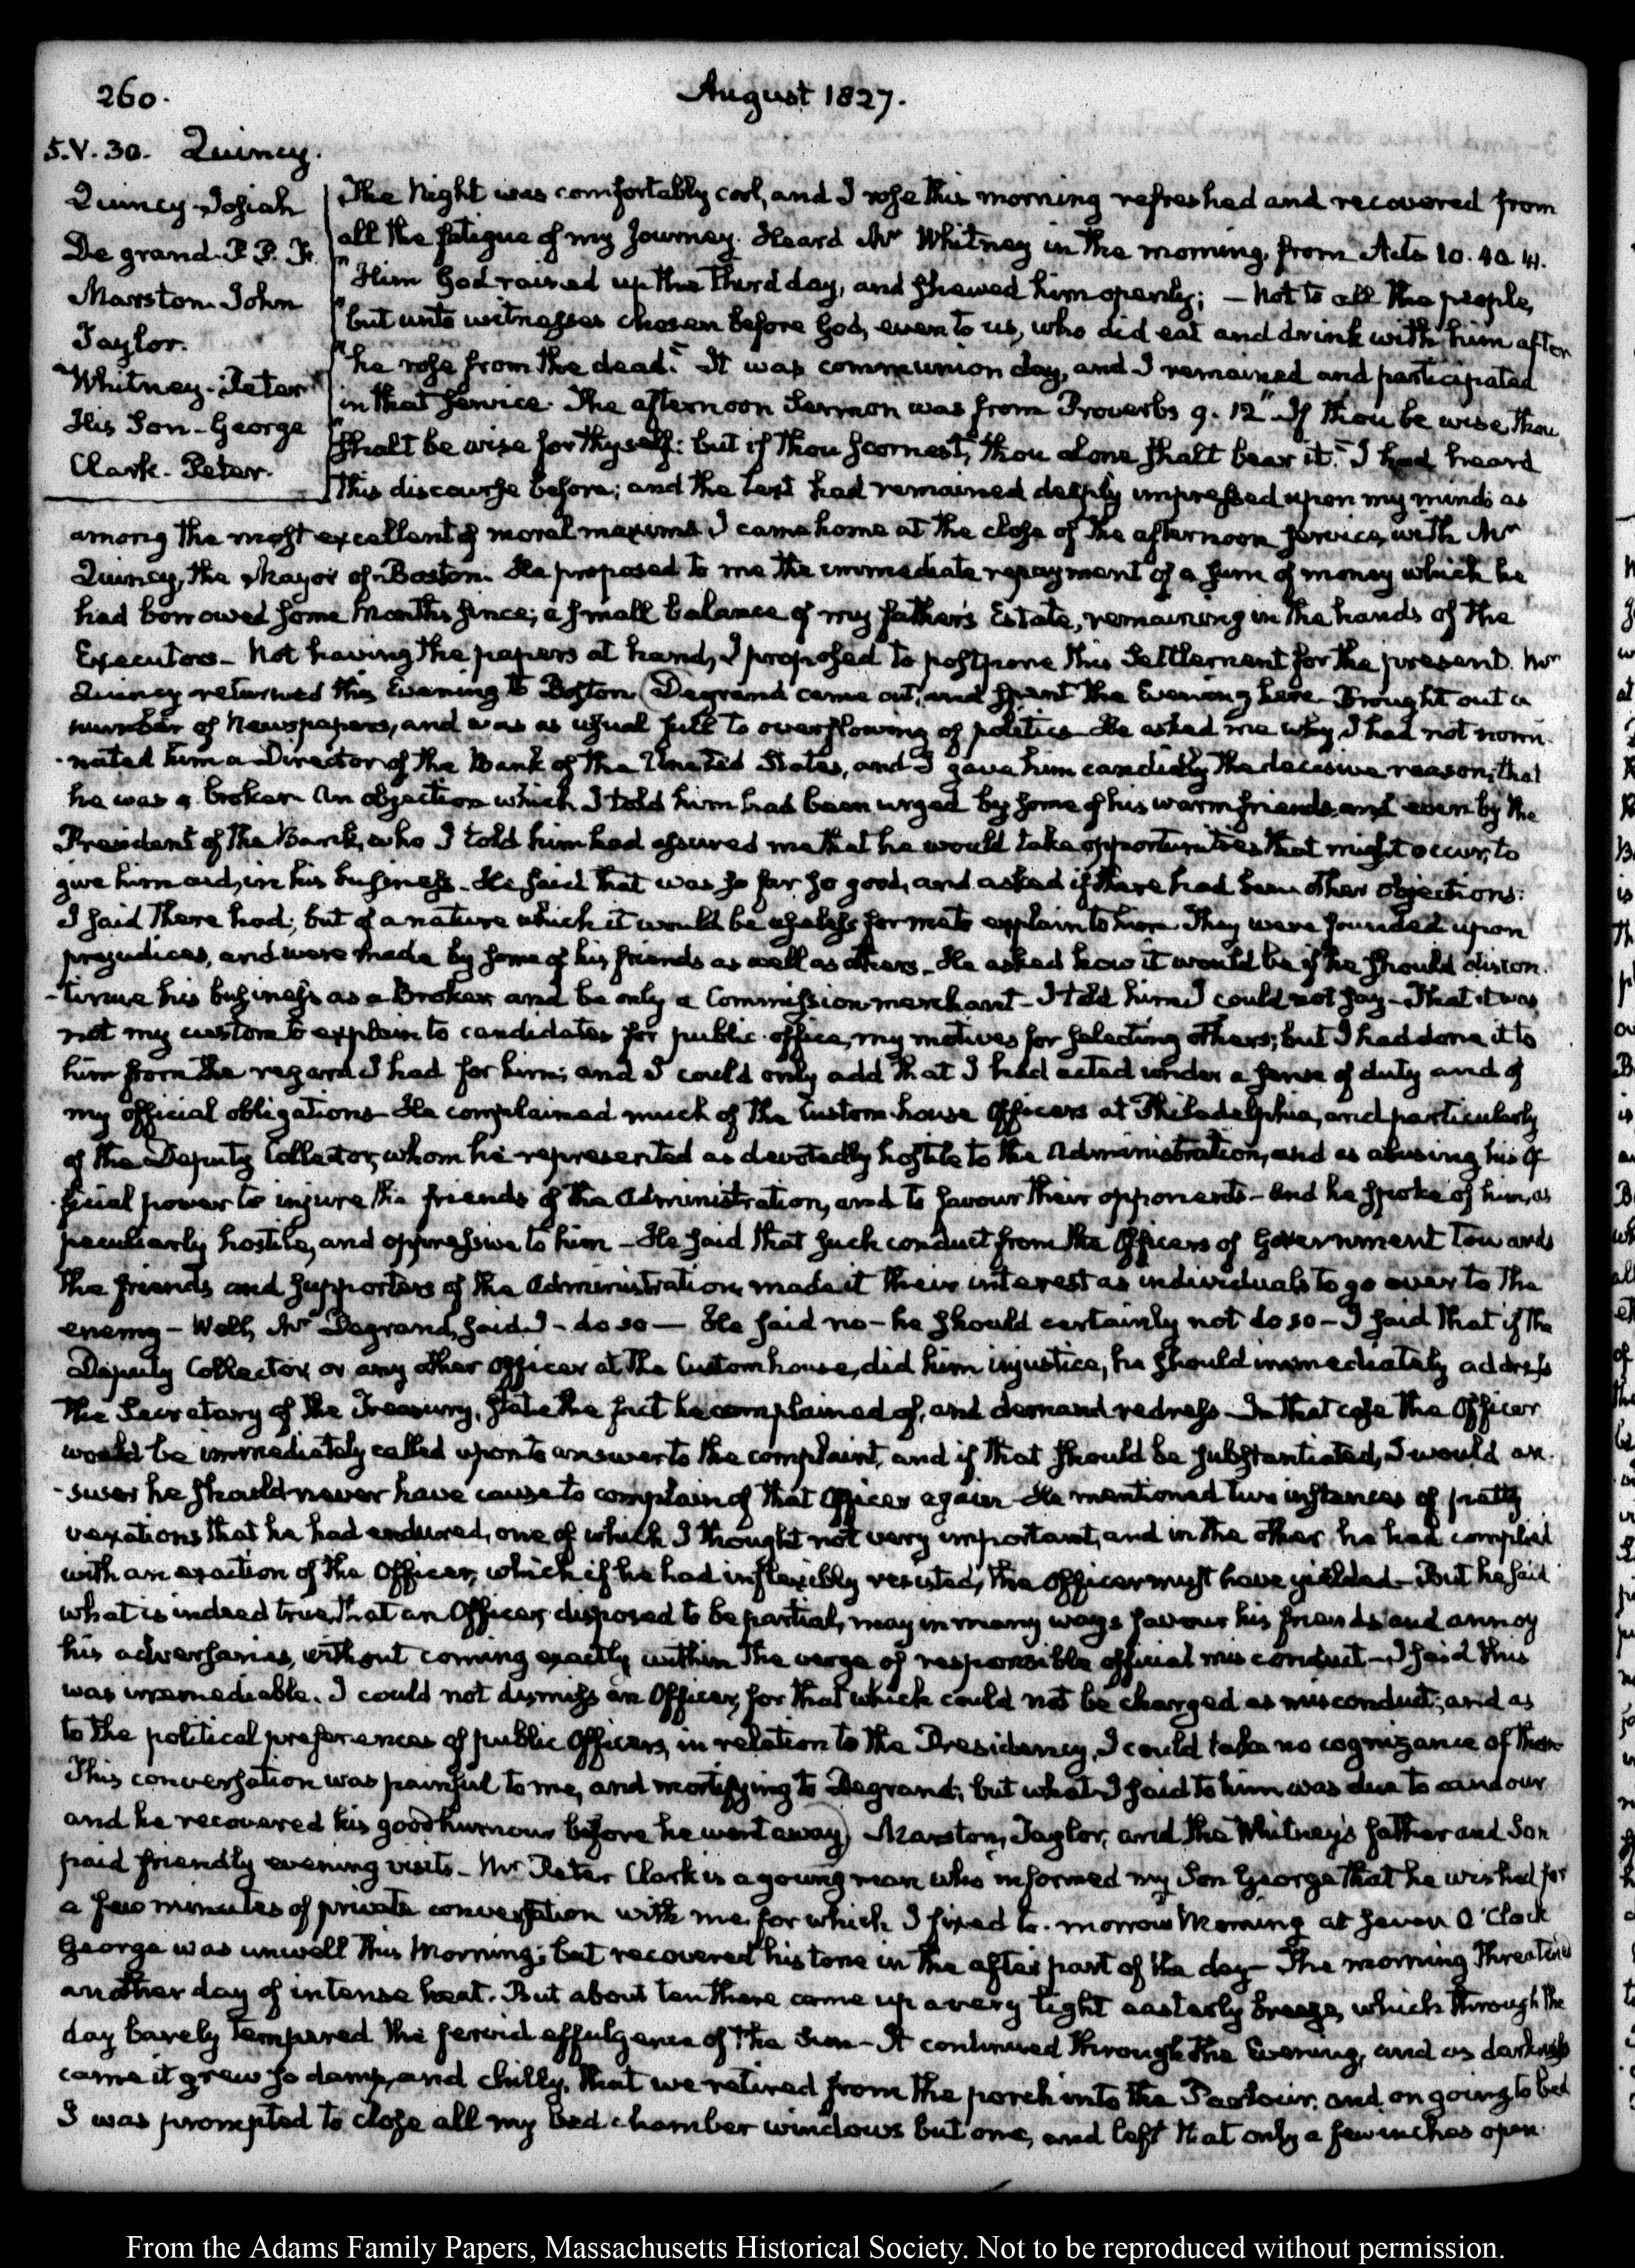 260.
August 1827.
5. V. 30. Quincy.
Quincy. Josiah
De grand. P. P. F.
Marston. John
Taylor.
Whitney. Peter
His Son - George
Clark. Peter.
The Night was comfortably cool, and I rose this morning refreshed and recovered from
all the fatigue of my Journey. Heard Mr Whitney in the morning, from Acts 10. 40. 41.
"Him God raised up the third day, and shewed him openly; — Not to all the people,
"but unto witnesses chosen before God, even to us, who did eat and drink with him after
"he rose from the dead." It was communion day, and I remained and participated
in that service. The afternoon Sermon was from Proverbs 9. 12 "If thou be wise, thou
"shalt be wise for thyself: but if thou scornest, thou alone shalt bear it." I had heard
this discourse before; and the text had remained deeply impressed upon my mind: as
among the most excellent of moral maxims. I came home at the close of the afternoon service, with Mr
Quincy, the Mayor of Boston. He proposed to me the immediate repayment of a sum of money which he
had borrowed some Months since; a small balance of my father's Estate, remaining in the hands of the
Executors — Not having the papers at hand, I proposed to postpone this Settlement for the present. Mr
Quincy returned this Evening to Boston (Degrand came out, and spent the Evening here. Brought out a
number of Newspapers, and was as usual full to overflowing of politics. He asked me why I had not nomi-
-nated him a Director of the Bank of the United States, and I gave him candidly the decisive reason, that
he was a broker. An objection which I told him had been urged by some of his warm friends, and even by the
President of the Bank, who I told him had assured me that he would take opportunities that might occur, to
give him aid, in his business. He said that was so far so good, and asked if there had been other objections.
I said there had; but of a nature which it would be useless for me to explain to him. They were founded upon
prejudices, and were made by some of his friends as well as others. He asked how it would be if he should discon-
-tinue his business as a Broker and be only a Commission-merchant — I told him I could not say — That it was
not my custom to explain to candidates for public office, my motives for selecting others; but I had done it to
him from the regard I had for him; and I could only add that I had acted under a sense of duty and of
my official obligations. He complained much of the Custom-house Officers at Philadelphia, and particularly
of the Deputy Collector, whom he represented as devotedly hostile to the Administration, and as abusing his of-
-ficial power to injure the friends of the Administration, and to favour their opponents — And he spoke of him, as
peculiarly hostile, and oppressive to him — He said that such conduct from the Officers of Government towards
the friends and supporters of the Administration, made it their interest as individuals to go over to the
enemy — Well, Mr Degrand, said I — do so — He said no — he should certainly not do so — I said that if the
Deputy Collector, or any other Officer at the Customhouse, did him injustice, he should immediately address
the Secretary of the Treasury, state the fact he complained of, and demand redress — In that case the Officer
would be immediately called upon to answer to the complaint, and if that should be substantiated, I would an-
-swer he should never have cause to complain of that Officer again. He mentioned two instances of petty
vexations that he had endured, one of which I thought not very important, and in the other he had complied
with an exaction of the Officer, which if he had inflexibly resisted, the Officer must have yielded — But he said
what is indeed true, that an Officer, disposed to be partial, may in many ways favour his friends and annoy
his adversaries, without coming exactly within the verge of responsible official misconduct — I said this
was irremediable. I could not dismiss an Officer, for that which could not be charged as misconduct; and as
to the political preferences of public Officers, in relation to the Presidency, I could take no cognizance of them
This conversation was painful to me, and mortifying to Degrand; but what I said to him was due to candour
and he recovered his good humour before he went away) Marston, Taylor, and the Whitney's father and Son
paid friendly evening visits — Mr Peter Clark is a young man who informed my Son George that he wished for
a few minutes of private conversation with me, for which I fixed to-morrow Morning at seven O'Clock
George was unwell this Morning; but recovered his tone in the after part of the day — The morning threatened
another day of intense heat. But about ten there came up a very light easterly breeze, which through the
day barely tempered the fervid effulgence of the Sun — It continued through the Evening, and as darkness
came it grew so damp, and chilly, that we retired from the porch into the Parlour; and on going to bed
I was prompted to close all my bed chamber windows but one, and left that only a few inches open.
From the Adams Family Papers, Massachusetts Historical Society. Not to be reproduced without permission.